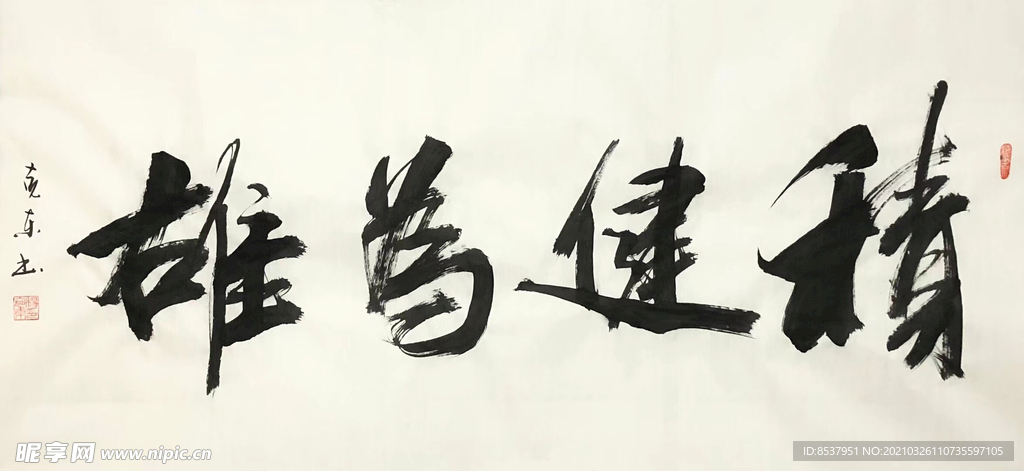 積健為雄
克東书
昵享网 www.nipic.cn
ID:8537951 NO:20210326110735597105